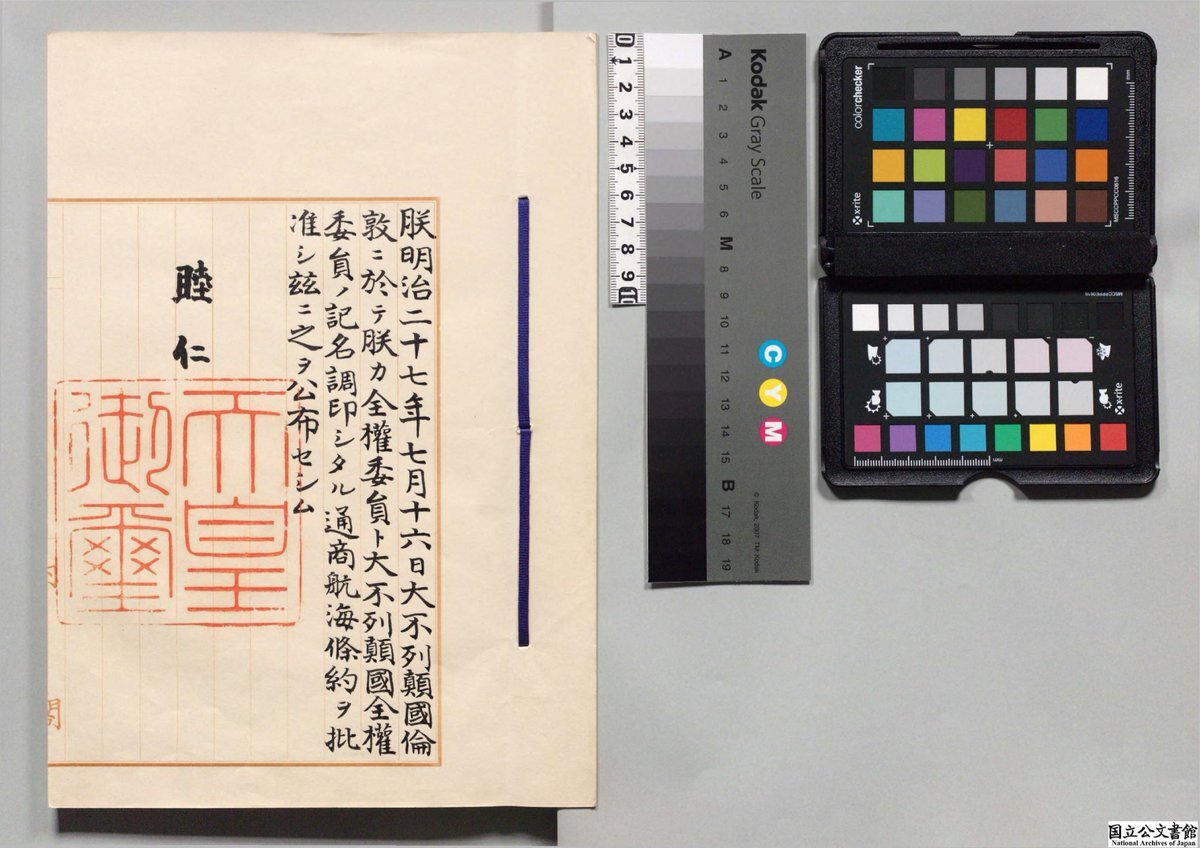 朕明治二十七年七月十六日大不列顛國倫
敦ニ於テ朕カ全權委員ト大不列顛國全權
委員ノ記名調印シタル通商航海條約ヲ批
准シ茲ニ之ヲ公布セシム
睦仁
天皇
御璽
内
閣
0 1 2 3 4 5 6 7 8 9 10
Kodak Gray Scale
A 1 2 3 4 5 6 M 8 9 10 11 12 13 14 15 B 17 18 19
C Y M
© Kodak, 2007 TM: Kodak
colorchecker
x-rite
mm
MSCCPPCC0616
MSCCPPE0616
x-rite
mm
国立公文書館
National Archives of Japan